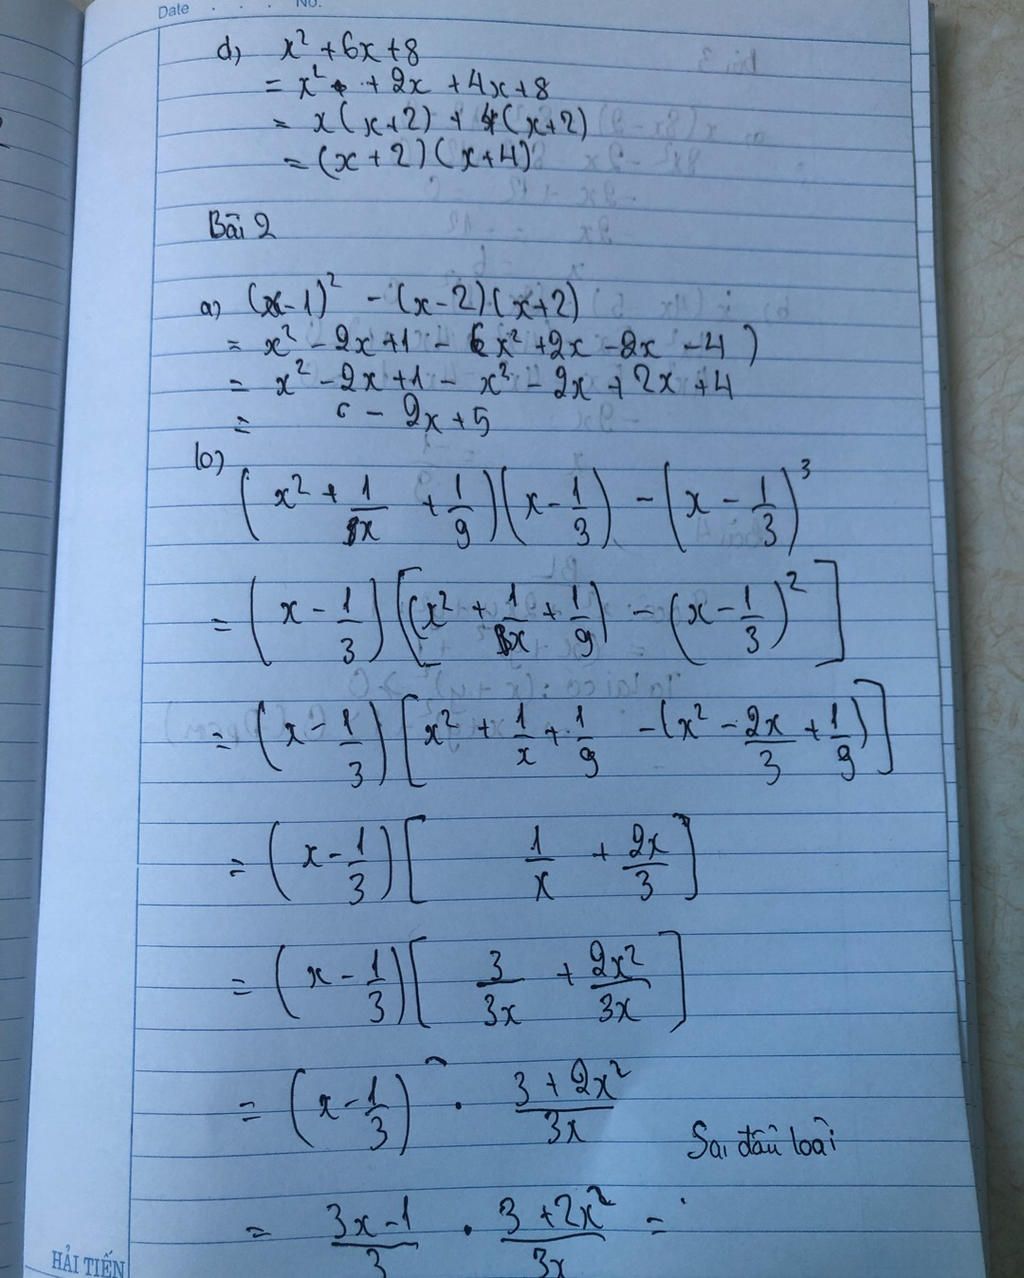 Date . . . No.
d) x² + 6x + 8
= x² + 2x + 4x + 8
= x(x+2) + 4(x+2)
= (x+2)(x+4)
Bài 2
a) (x-1)² - (x-2)(x+2)
= x² - 2x + 1 - (x² + 2x - 2x - 4)
= x² - 2x + 1 - x² - 2x + 2x + 4
= - 2x + 5
b)
(x² + 1/x + 1/9)(x - 1/3) - (x - 1/3)³
= (x - 1/3)[(x² + 1/x + 1/9) - (x - 1/3)²]
= (x - 1/3)[x² + 1/x + 1/9 - (x² - 2x/3 + 1/9)]
= (x - 1/3)[1/x + 2x/3]
= (x - 1/3)[3/3x + 2x²/3x]
= (x - 1/3) . (3 + 2x²)/3x
Sai đâù loài
= (3x - 1)/3 . (3 + 2x²)/3x =
HẢI TIẾN